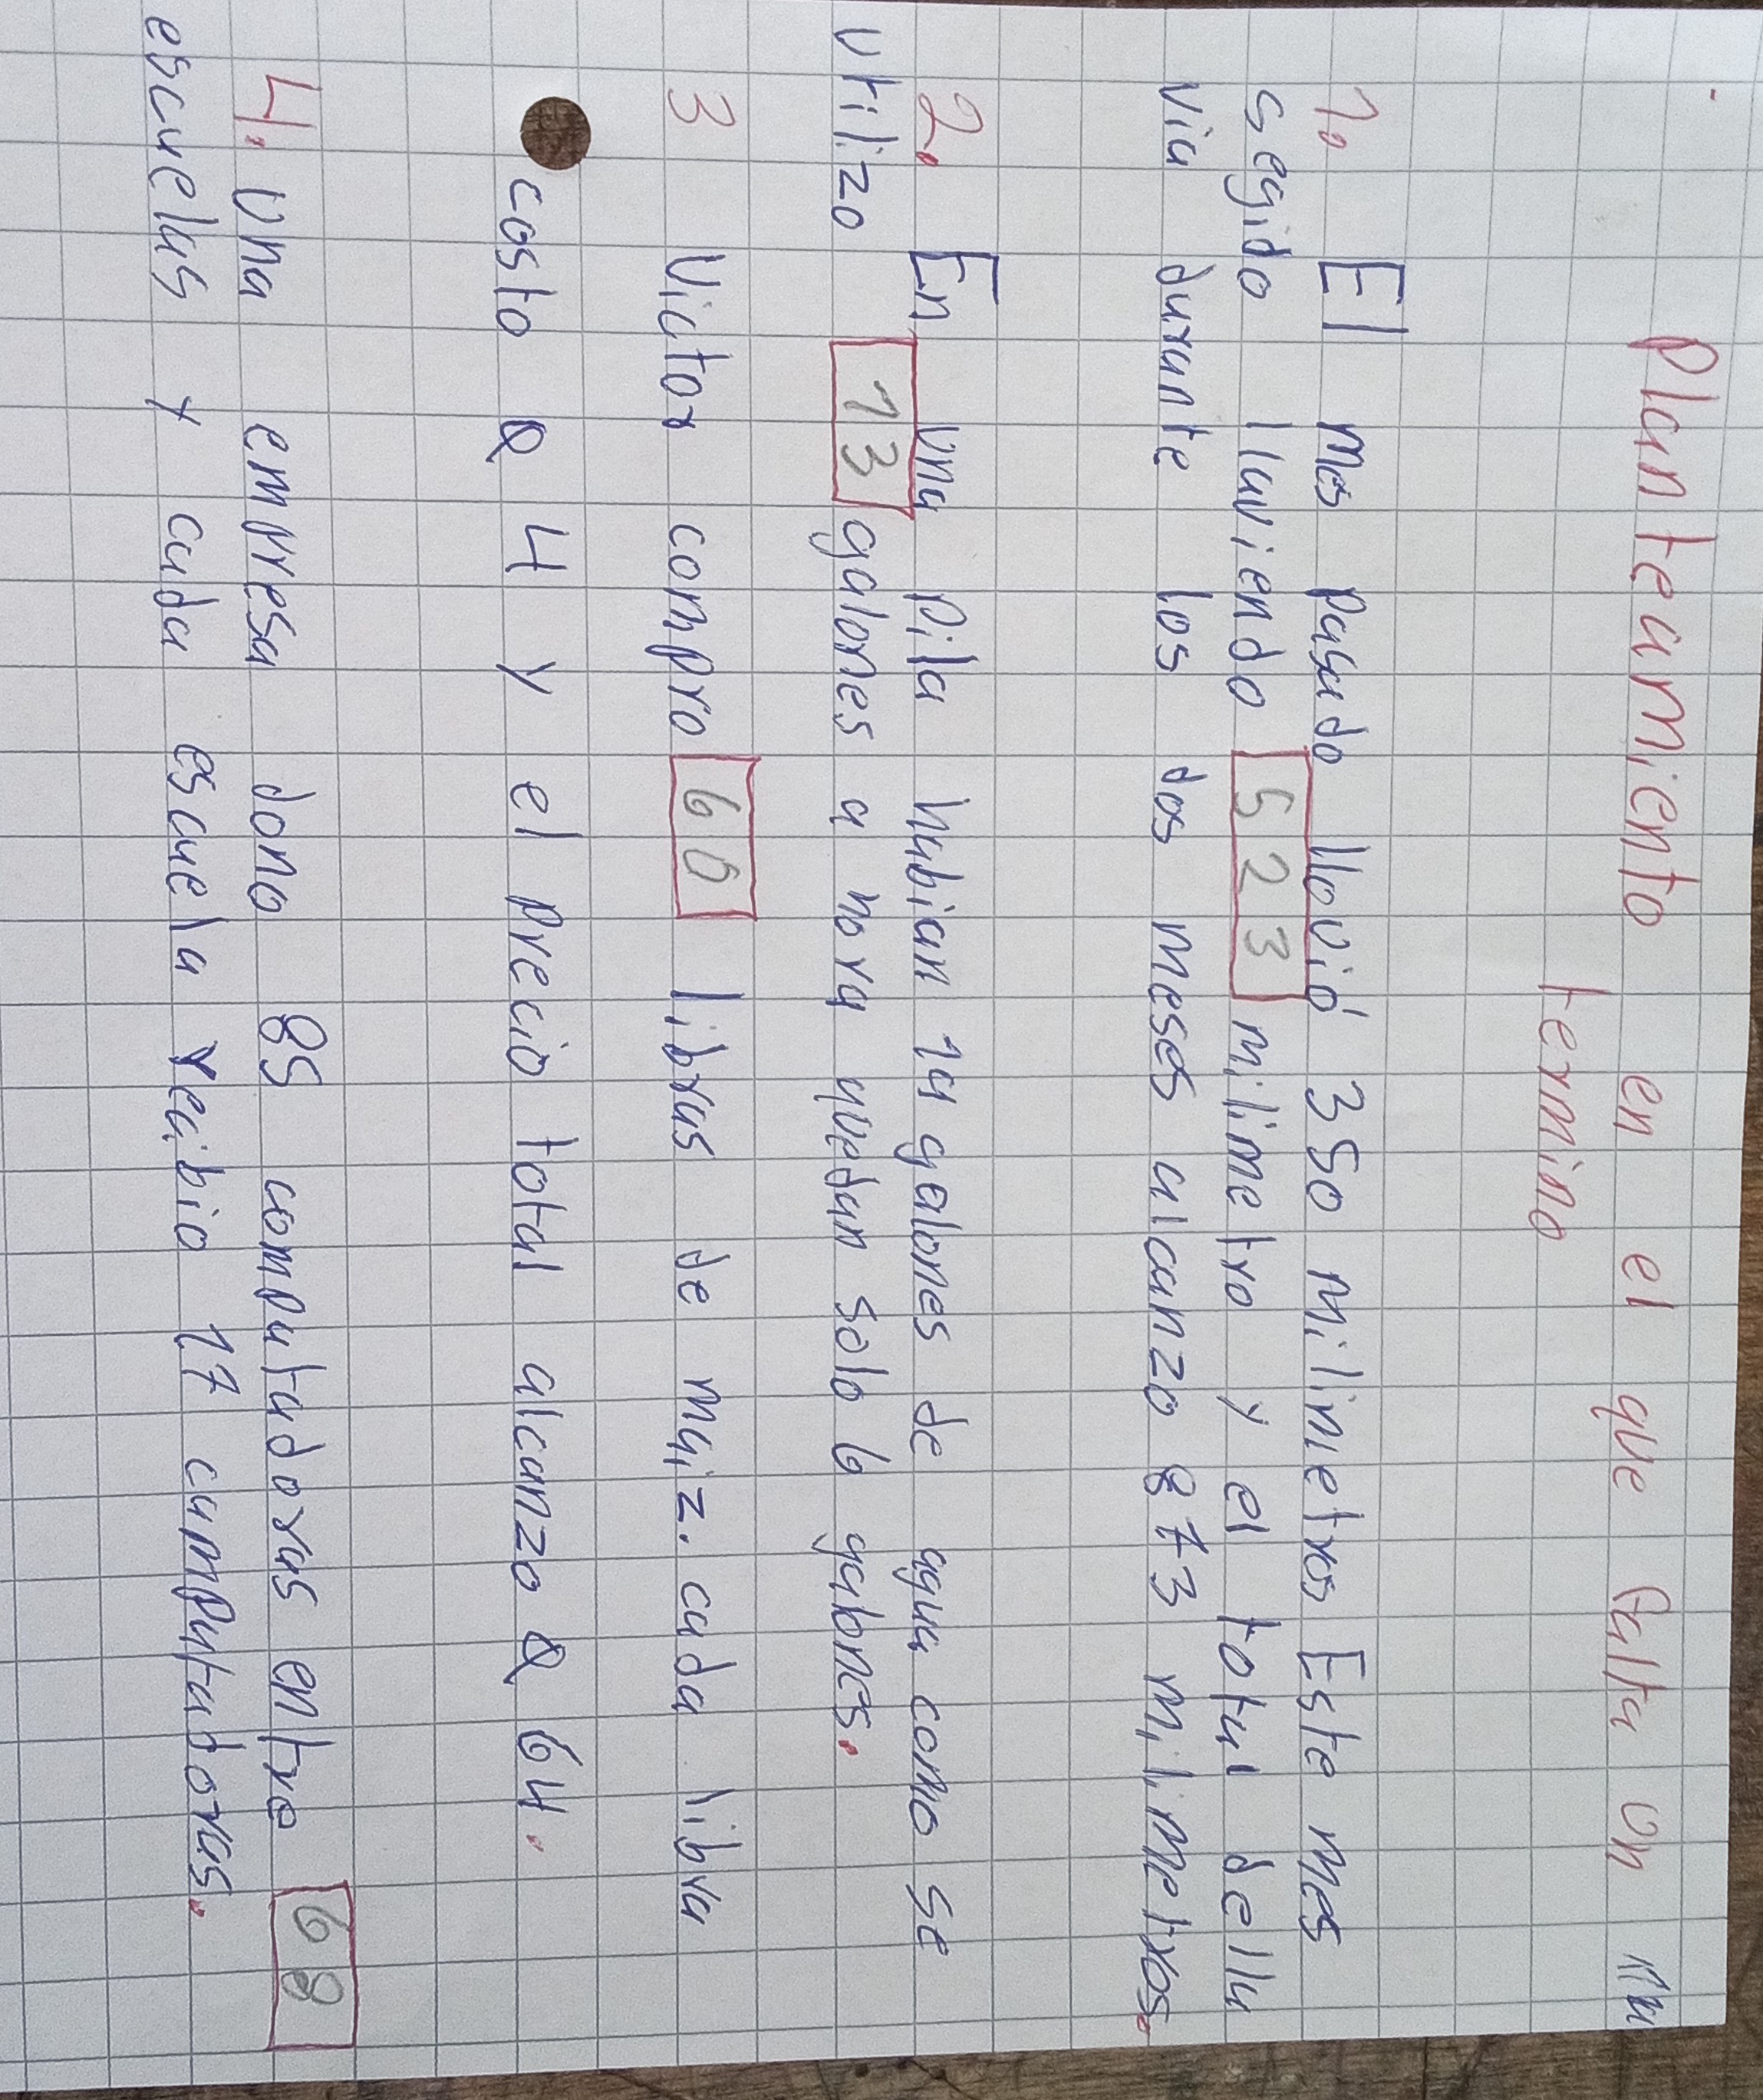 Planteamiento en el que falta un
termino
1. El mes pasado llovió 350 milimetros Este mes
segido lluviendo 523 milimetro y el total dellu
via durante los dos meses alcanzo 873 milimetros.
2. En una pila hubian 19 galones de agua como se
utilizo 13 galones a hora quedan solo 6 galones.
3 Victor compro 60 libras de maiz. cada libra
costo Q 4 y el precio total alcanzo Q 64.
4. Una empresa dono 85 computadoras entre 68
escuelas y cada escuela recibio 17 cumputadoras.